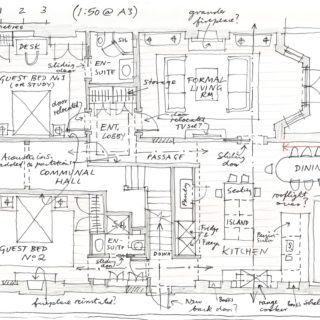 1 2 3
(1:50 @ A3)
metres
grander
fireplace?
DESK
sliding
door
EN-
SUITE
SH.
GUEST BED No 1
(OR STUDY)
Storage
FORMAL
LIVING
RM
door
relocated
ENT.
LOBBY
door
relocated
TV set?
PASSAGE
Sliding
door
K
Acoustic ins.
added to partition
COMMUNAL
HALL
DINING
rooflight
over?
Pantry
Seating
ISLAND
Fridge
Freezer
KITCHEN
GUEST BED
No 2
EN-
SUITE
sliding
door
DOWN
fireplace reinstated?
New
back door?
Books
range
cooker
books